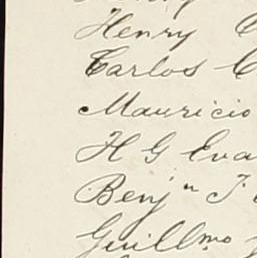 Henry
Carlos
Mauricio
H G Eva
Benjn J
Guillmo